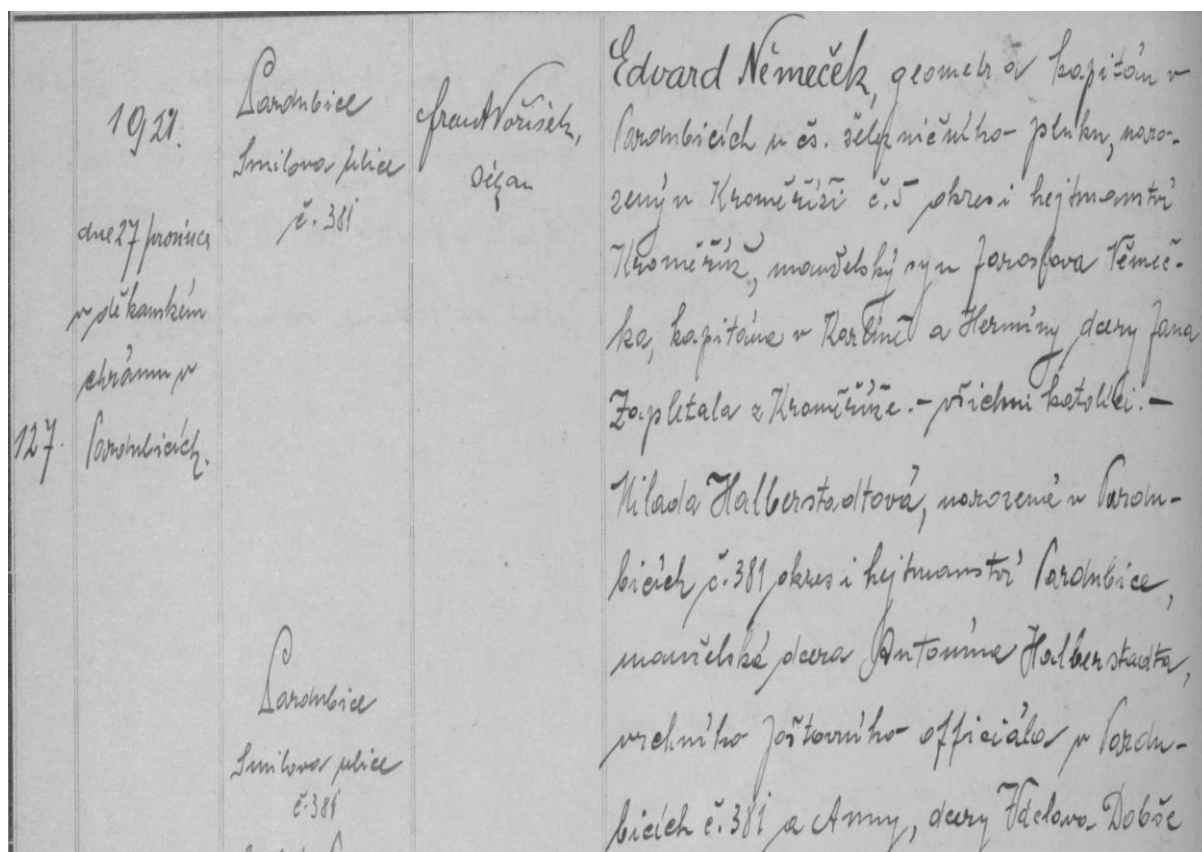 127.
1921.
dne 27 prosince
v děkanském
chrámu v
Pardubicích.
Pardubice
Smilova ulice
č. 381
Pardubice
Smilova ulice
č. 381
Frant Voříšek,
děkan
Edvard Němeček, geometr a kapitán v
Pardubicích u čs. železničního pluku, naro-
zený v Kroměříži č. 5 okres i hejtmanství
Kroměříž, manželský syn Jaroslava Němeč-
ka, kapitána v Karlíně a Hermíny dcery Jana
Zapletala z Kroměříže. – všichni katolíci. –
Milada Halberstadtová, narozená v Pardu-
bicích č. 381 okres i hejtmanství Pardubice,
manželská dcera Antonína Halberstadta,
vrchního poštovního officiála v Pardu-
bicích č. 381 a Anny, dcery Václava Dobše